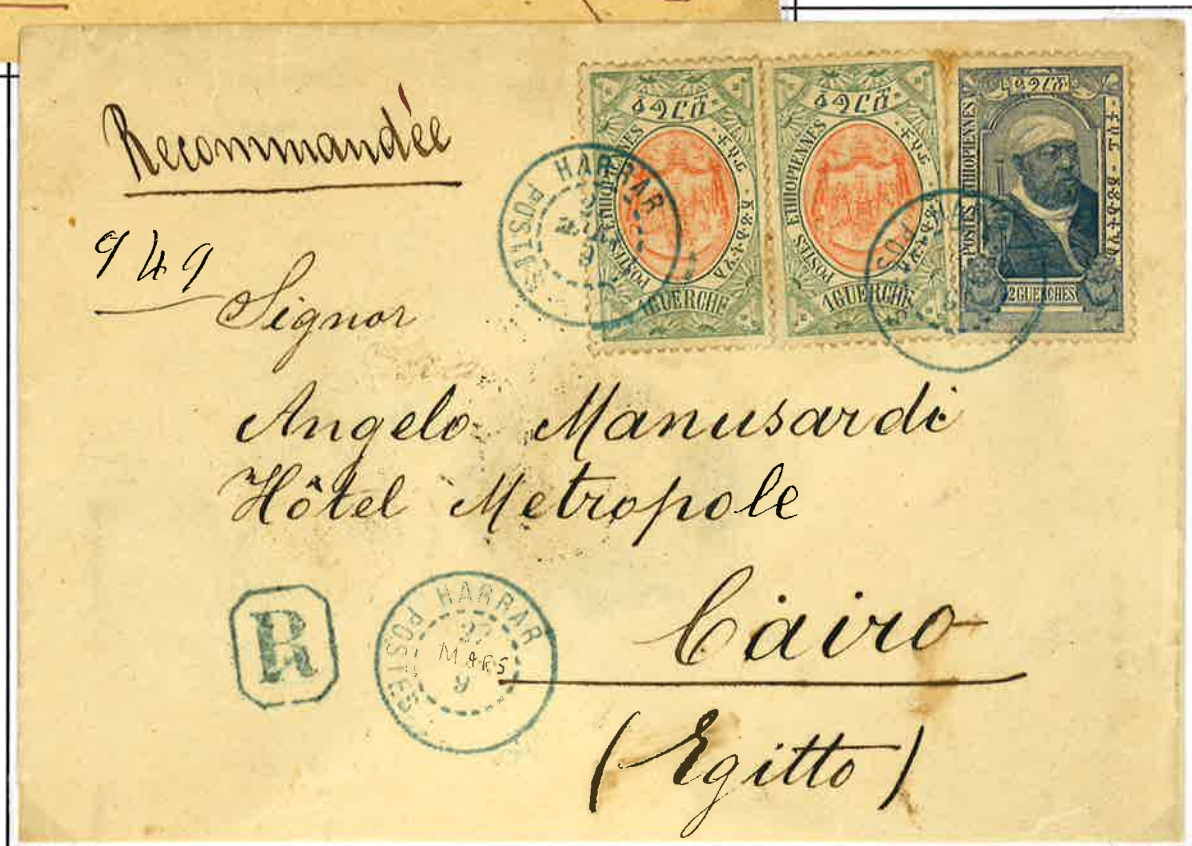 Recommandée
949
Signor
Angelo Manusardi
Hôtel Metropole
Cairo
(Egitto)
R
POSTES HARRAR
27
MARS
9
POSTES HARRAR
9
POSTES ÉTHIOPIENNES
1 GUERCHE
POSTES ÉTHIOPIENNES
1 GUERCHE
POSTES ÉTHIOPIENNES
2 GUERCHES